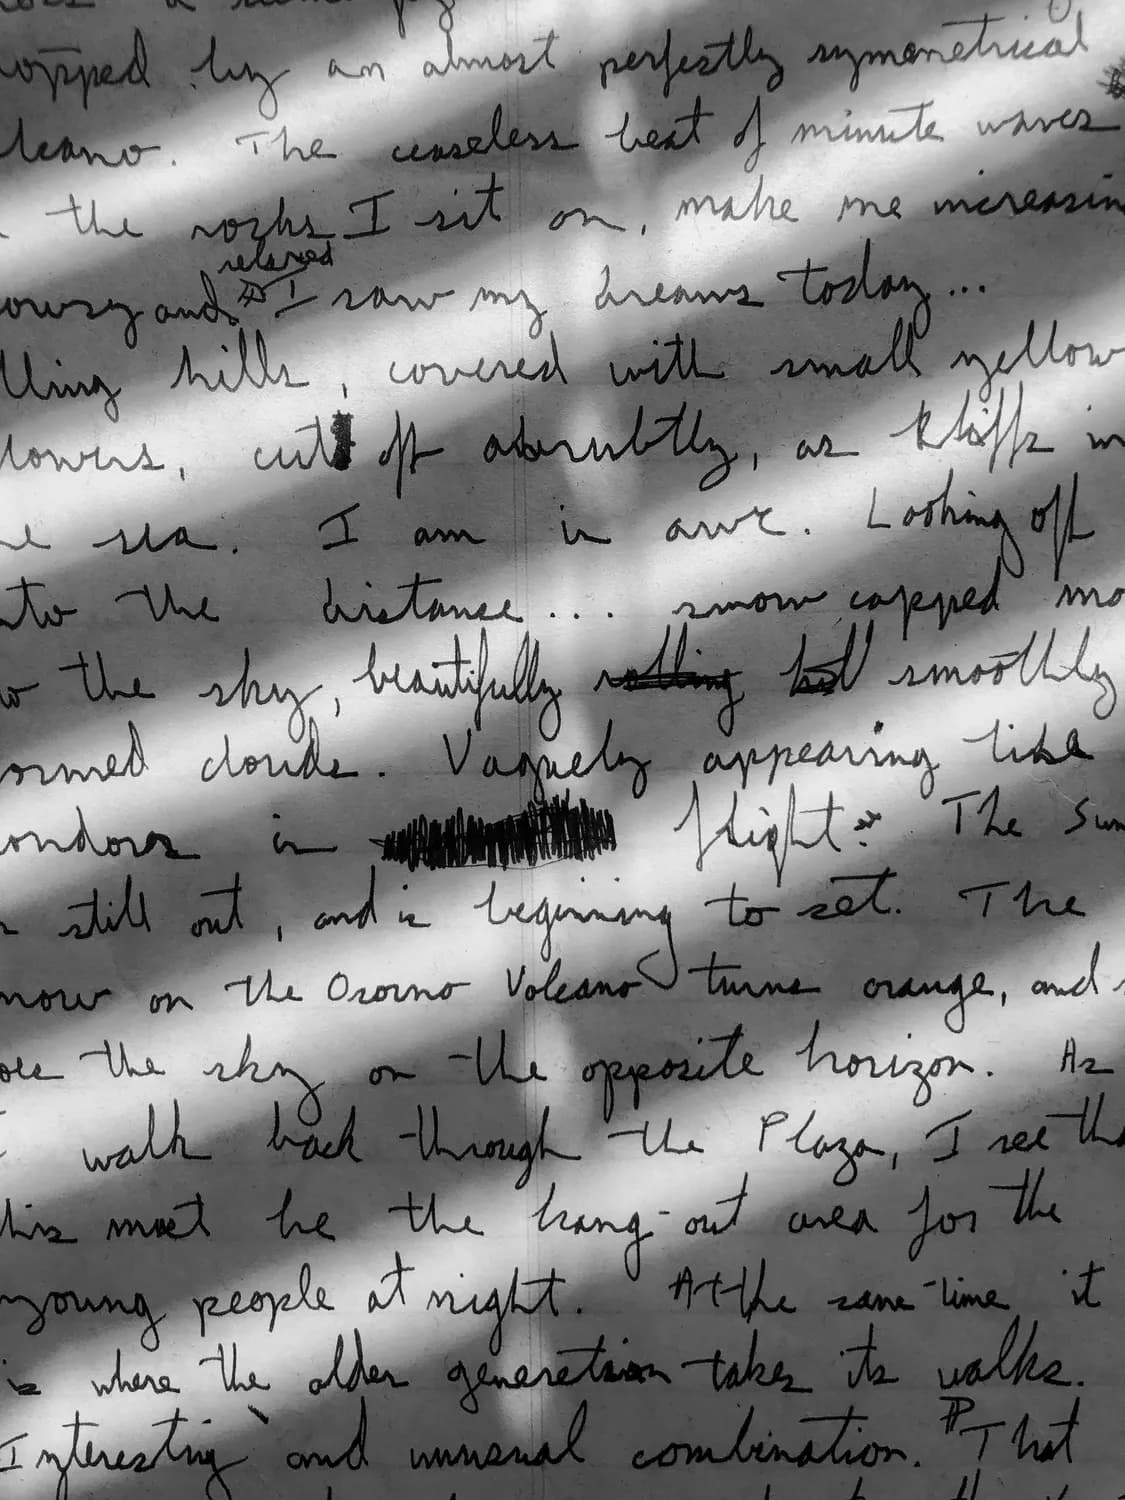 opped by an almost perfectly symmetrical
lcano. The ceaseless beat of minute waves
the rocks I sit on, make me increasin
relaxed
owsy and I saw my dreams today...
lling hills, covered with small yellow
lowers, cut off abrubtly, as kliffs in
e sea. I am in awe. Looking off
nto the distance.... snow capped mo
o the sky, beautifully rolling smoothly
ormed clouds. Vaguely appearing like
ondors in flight. The Sun
still out, and is beginning to set. The
now on the Osorno Volcano turns orange, and
oes the sky on the opposite horizon. As
I walk back through the Plaza, I see tha
this must be the hang-out area for the
young people at night. At the same time it
is where the older generation takes its walks.
Interesting and unusual combination. That